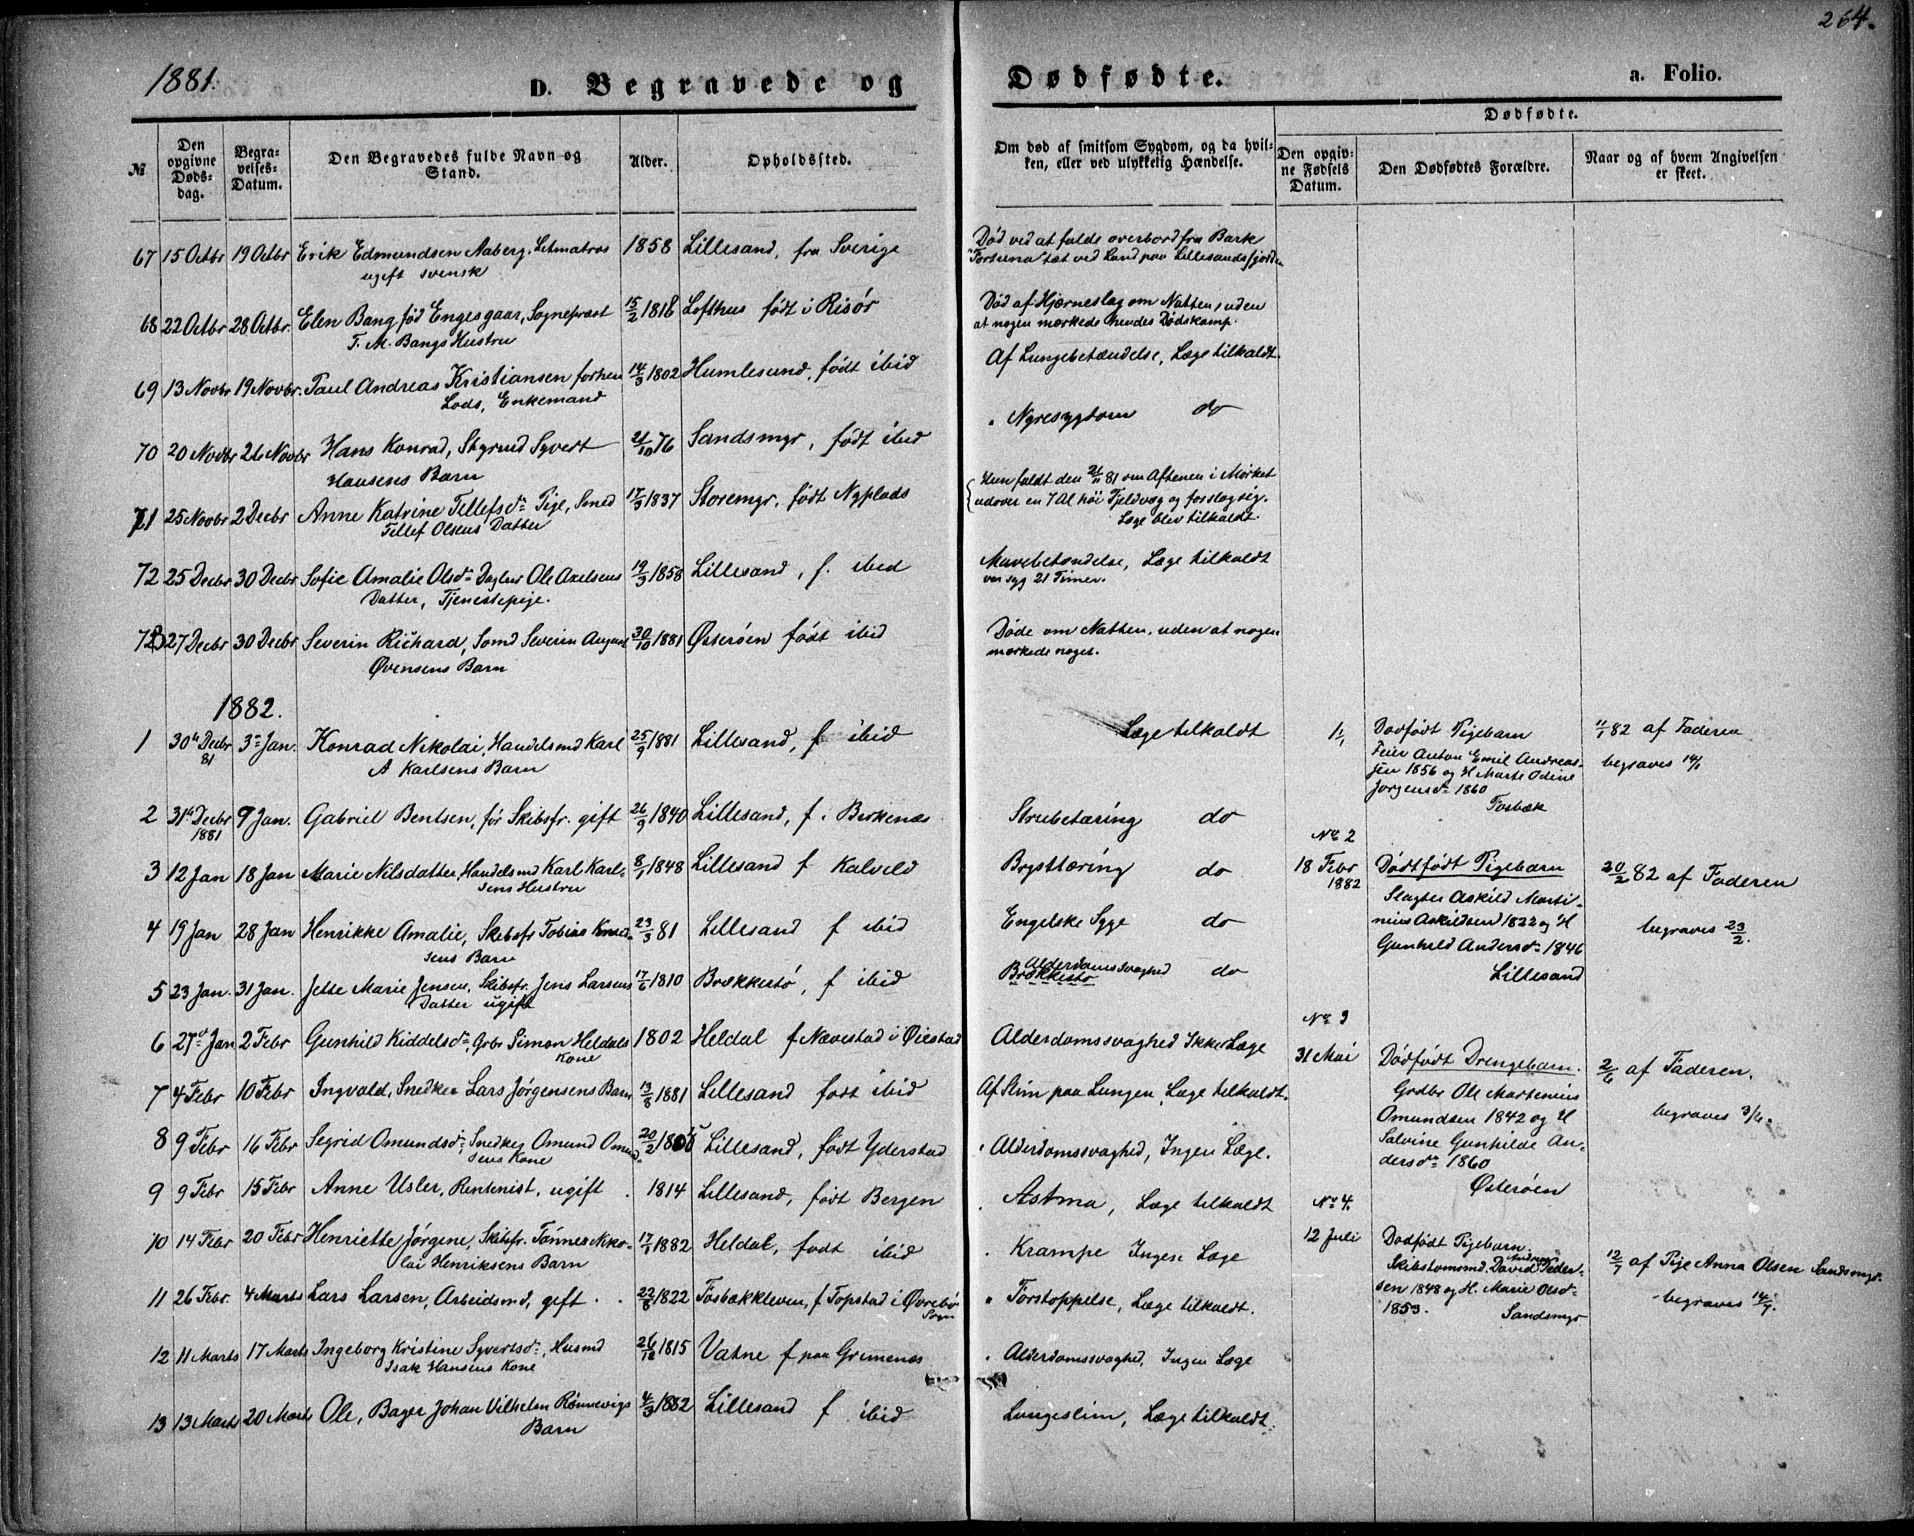 264.
1881.
D. Begravede og Dødfødte. a. Folio.
№
Den opgivne Dødsdag.
Begravelses-Datum.
Den Begravedes fulde Navn og Stand.
Alder.
Opholdssted.
Om død af smitsom Sygdom, og da hvilken, eller ved ulykkelig Hændelse.
Dødfødte.
Den opgivne Fødsels Datum.
Den Dødfødtes Forældre.
Naar og af hvem Angivelsen er skeet.
67 15 Octbr 19 Octbr Erik Edmundsen Aaberg, Letmatros 1858 Lillesand, fra Sverige Død ved at falde overbord fra Bark
ugift svensk "Fortuna" tæt ved Land paa Lillesandsfjorden
68 22 Octbr 28 Octbr. Elen Bang fød Engesgaar, Sognepræst 15/2 1818 Lofthus født i Risør Død af Hjerneslag om Natten, uden
T. M. Bangs Hustru at nogen mærkede hendes Dødskamp.
69 13 Novbr 19 Novbr. Paul Andreas Kristiansen forhen 14/3 1802 Humlesund, født ibid Af Lungebetændelse, Læge tilkaldt.
Lods, Enkemand
70 20 Novbr 26 Novbr Hans Konrad, Sivert 21/10 76 Sandsmyr, født ibid " Nyresygdom do
Hansens Barn
71 25 Novbr 2 Decbr Anne Katrine Tellefsdr Pige, Smed 17/3 1837 Storemyr, født Nyplads Hun faldt den 21/11 81 om Aftenen i Mørket
Tellef Olsens Datter udover en 7 Al høi Fjeldvæg og forslog sig.
Læge blev tilkaldt.
72 25 Decbr 30 Decbr Sofie Amalie Olsdr Daglnr Ole Axelsens 19/3 1858 Lillesand, f. ibid Mavebetændelse, Læge tilkaldt
Datter, Tjenestepige. var syg 21 Timer.
73 27 Decbr 30 Decbr Severin Richard, Sømd Severin August 30/10 1881 Østerøen født ibid Døde om Natten, uden at nogen
Øvensens Barn mærkede noget.
1882.
1 30te Decbr 81 3die Jan. Konrad Nikolai, Handelsmd Karl 25/9 1881 Lillesand, f ibid Læge tilkaldt 1/1 Dødfødt Pigebarn 11/1 82 af Faderen
A Karlsens Barn Feier Anton Emil Andreas- begraves 14/1
sen 1856 og H Marte Odine
Jørgensdr 1860
Fosbæk
2 31te Decbr 1881 9 Jan. Gabriel Bentsen, før Skibsfr. gift 26/9 1840 Lillesand, f. Birkenæs Strubetæring do
No 2
3 12 Jan 18 Jan Marie Nilsdatter, Handelsmd Karl Karl- 8/1 1848 Lillesand f Kalveld Brysttæring do 18 Febr 1882 Dødfødt Pigebarn 20/2 82 af Faderen
sens Hustru Slagter Askild Marti-
4 19 Jan 28 Jan Henrikke Amalie, Skibsfr Tobias Knud- 23/3 81 Lillesand f ibid Engelske Syge do nius Askildsen 1822 og H begraves 23/2.
sens Barn Gunhild Andersdr 1846
Lillesand
5 23 Jan. 31 Jan. Jette Marie Jensen, Skibsfr. Jens Larsens 17/6 1810 Brækkestø, f ibid Brækkestø Alderdomssvaghed do
Datter ugift
No 3
6 27de Jan 2 Febr Gunhild Kiddelsdr, Grbr Simon Heldals 1802 Heldal f Nævestad i Øiestad Alderdomssvaghed Ikke Læge
Kone 31 Mai Dødfødt Drengebarn. 2/6 af Faderen.
7 4 Febr 10 Febr Ingvald, Snedker Lars Jørgensens Barn 13/8 1881 Lillesand født ibid Af Slim paa Lungen, Læge tilkaldt. Grdbr Ole Martenius begraves 3/6.
Omundsen 1842 og H
8 9 Febr 16 Febr Segrid Omundsdr, Snedker Omund Omund- 20/2 Lillesand, født Yderstad " Alderdomssvaghed, Ingen Læge. Salvine Gunhilde An-
sens Kone dersdr 1860
Østerøen
9 9 Febr 15 Febr Anne Usler, Rentenist, ugift . 1814 Lillesand, født Bergen " Astma, Læge tilkaldt No 4.
10 14 Febr 20 Febr Henriette Jørgine, Skibsfr. Tønnes Niko- 17/1 1882 Heldal, født ibid " Krampe Ingen Læge 12 Juli Dødfødt Pigebarn.
lai Henriksens Barn Skibstømmd. David Andreas Peder- 12/7 af Pige Anna Olsen Sandsmyr.
11 26 Febr. 4 Marts Lars Larsen, Arbeidsmd, gift . . 22/8 1822 Fosbækkleven, f Topstad i Øvrebø Sogn " Forstoppelse, Læge tilkaldt. sen 1848 og H. Marie Olsdr begraves 14/7.
1853. Sandsmyr
12 11 Marts 17 Marts Ingeborg Kristine Syvertsdr, Husmd 26/12 1815 Vatne f paa Grimenæs " Alderdomssvaghed, Ingen Læge
Isak Hansens Kone
13 13 Marts 20 Marts Ole, Bager Johan Vilhelm Rønnevigs 4/3 1882 Lillesand f ibid Lungeslim, Læge tilkaldt.
Barn